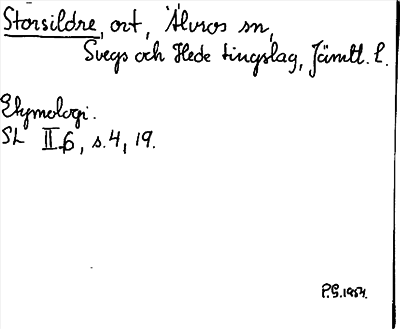 Storsildre, ort, Älvros sn,
Svegs och Hede tingslag, Jämtl. l.
Etymologi.
SL II:6, s. 4, 19.
P.G. 1954.